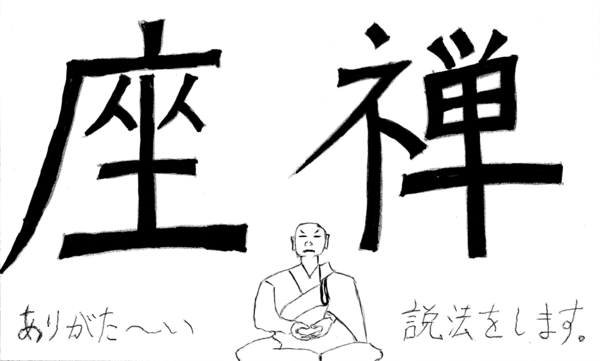 座禅
ありがた～い 説法をします。